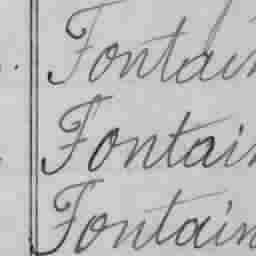 Fontain
Fontain
Fontain